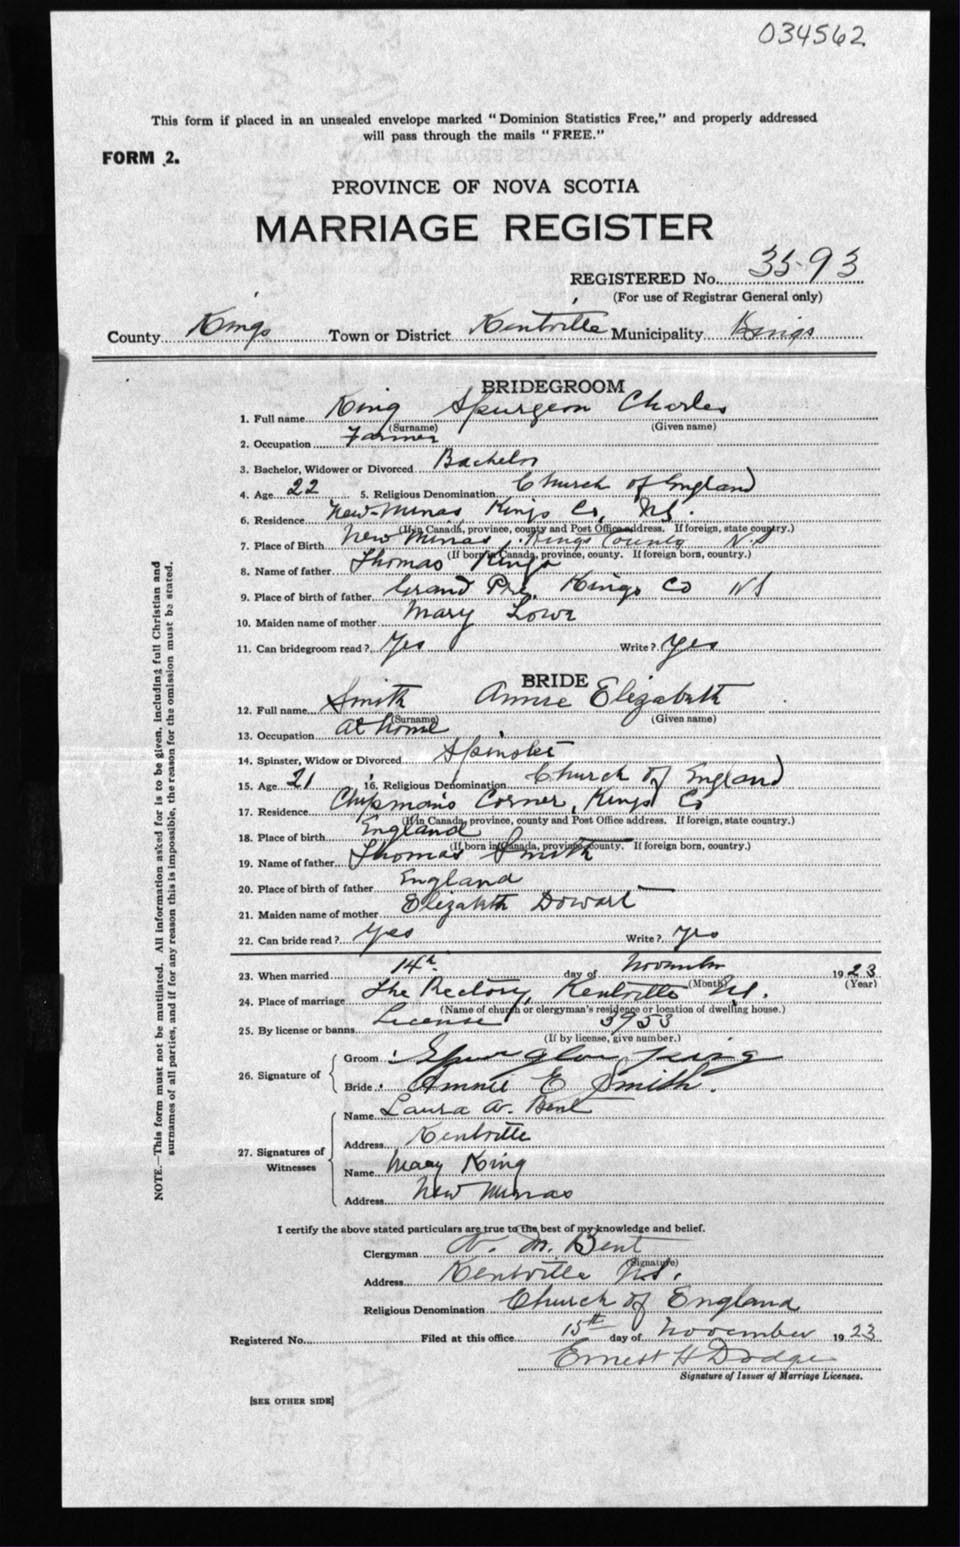 034562
This form if placed in an unsealed envelope marked "Dominion Statistics Free," and properly addressed
will pass through the mails "FREE."
FORM 2.
PROVINCE OF NOVA SCOTIA
MARRIAGE REGISTER
REGISTERED No. 3593
(For use of Registrar General only)
County Kings Town or District Kentville Municipality Kings
BRIDEGROOM
1. Full name King Spurgeon Charles
(Surname) (Given name)
2. Occupation Farmer
3. Bachelor, Widower or Divorced Bachelor
4. Age 22 5. Religious Denomination Church of England
6. Residence New Minas Kings Co, N.S.
(If in Canada, province, county and Post Office address. If foreign, state country.)
7. Place of Birth New Minas, Kings County N.S
(If born in Canada, province, county. If foreign born, country.)
8. Name of father Thomas King
9. Place of birth of father Grand Pré, Kings Co NS
10. Maiden name of mother Mary Lowe
11. Can bridegroom read? Yes Write? Yes
BRIDE
12. Full name Smith Annie Elizabeth
(Surname) (Given name)
13. Occupation at home
14. Spinster, Widow or Divorced Spinster
15. Age 21 16. Religious Denomination Church of England
17. Residence Chipman's Corner, Kings Co
(If in Canada, province, county and Post Office address. If foreign, state country.)
18. Place of birth England
(If born in Canada, province, county. If foreign born, country.)
19. Name of father Thomas Smith
20. Place of birth of father England
21. Maiden name of mother Elizabeth Dowart
22. Can bride read? Yes Write? Yes
23. When married 14th day of November 1923
(Month) (Year)
24. Place of marriage The Rectory, Kentville N.S.
(Name of church or clergyman's residence or location of dwelling house.)
25. By license or banns License 3953
(If by license, give number.)
26. Signature of
Groom Spurgeon King
Bride Annie E Smith.
27. Signatures of Witnesses
Name Laura A. Bent
Address Kentville
Name Mary King
Address New Minas
I certify the above stated particulars are true to the best of my knowledge and belief.
Clergyman A. M. Bent
(Signature)
Address Kentville N.S.
Religious Denomination Church of England
Registered No. Filed at this office 15th day of November 1923
Ernest H Dodge
Signature of Issuer of Marriage Licenses.
[SEE OTHER SIDE]
NOTE.—This form must not be mutilated. All information asked for is to be given, including full Christian and
surnames of all parties, and if for any reason this is impossible, the reason for the omission must be stated.